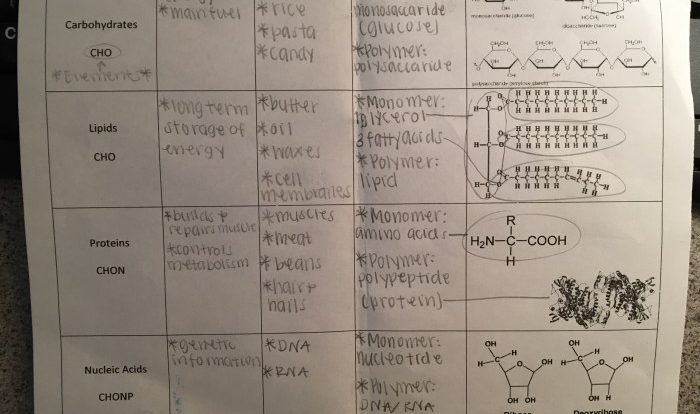 Carbohydrates
CHO
*Elements*
*main fuel
*rice
*pasta
*candy
monosaccaride
(glucose)
*Polymer:
polysaccaride
monosaccharide (glucose)
disaccharide (sucrose)
polysaccharide (amylose starch)
Lipids
CHO
*long term
storage of
energy
*butter
*oil
*waxes
*cell
membranes
*Monomer:
1 glycerol
3 fatty acids
*Polymer:
lipid
Proteins
CHON
*builds +
repairs muscle
*controls
metabolism
*muscles
*meat
*beans
*hair+
nails
*Monomer:
amino acids
*Polymer:
polypeptide
(protein)
R
H₂N-C-COOH
H
Nucleic Acids
CHONP
*genetic
information
*DNA
*RNA
*Monomer:
nucleotide
*Polymer:
DNA/RNA
Ribose
Deoxyribose